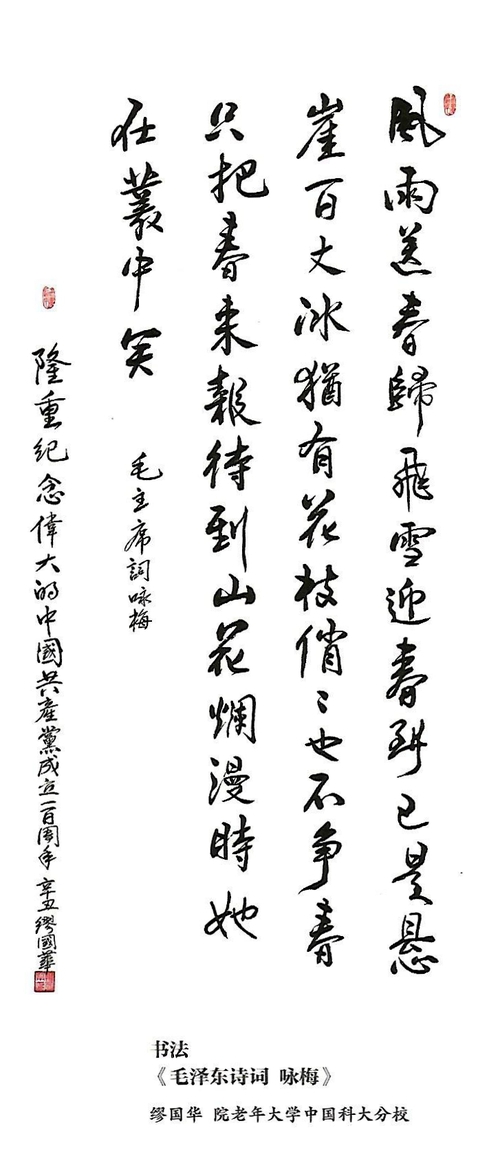 風雨送春歸飛雪迎春到已是懸
崖百丈冰猶有花枝俏〻也不争春
只把春来報待到山花爛漫時她
在叢中笑
毛主席詞咏梅
隆重纪念偉大的中國共產黨成立一百周年 辛丑繆國華
书法
《毛泽东诗词 咏梅》
缪国华 院老年大学中国科大分校